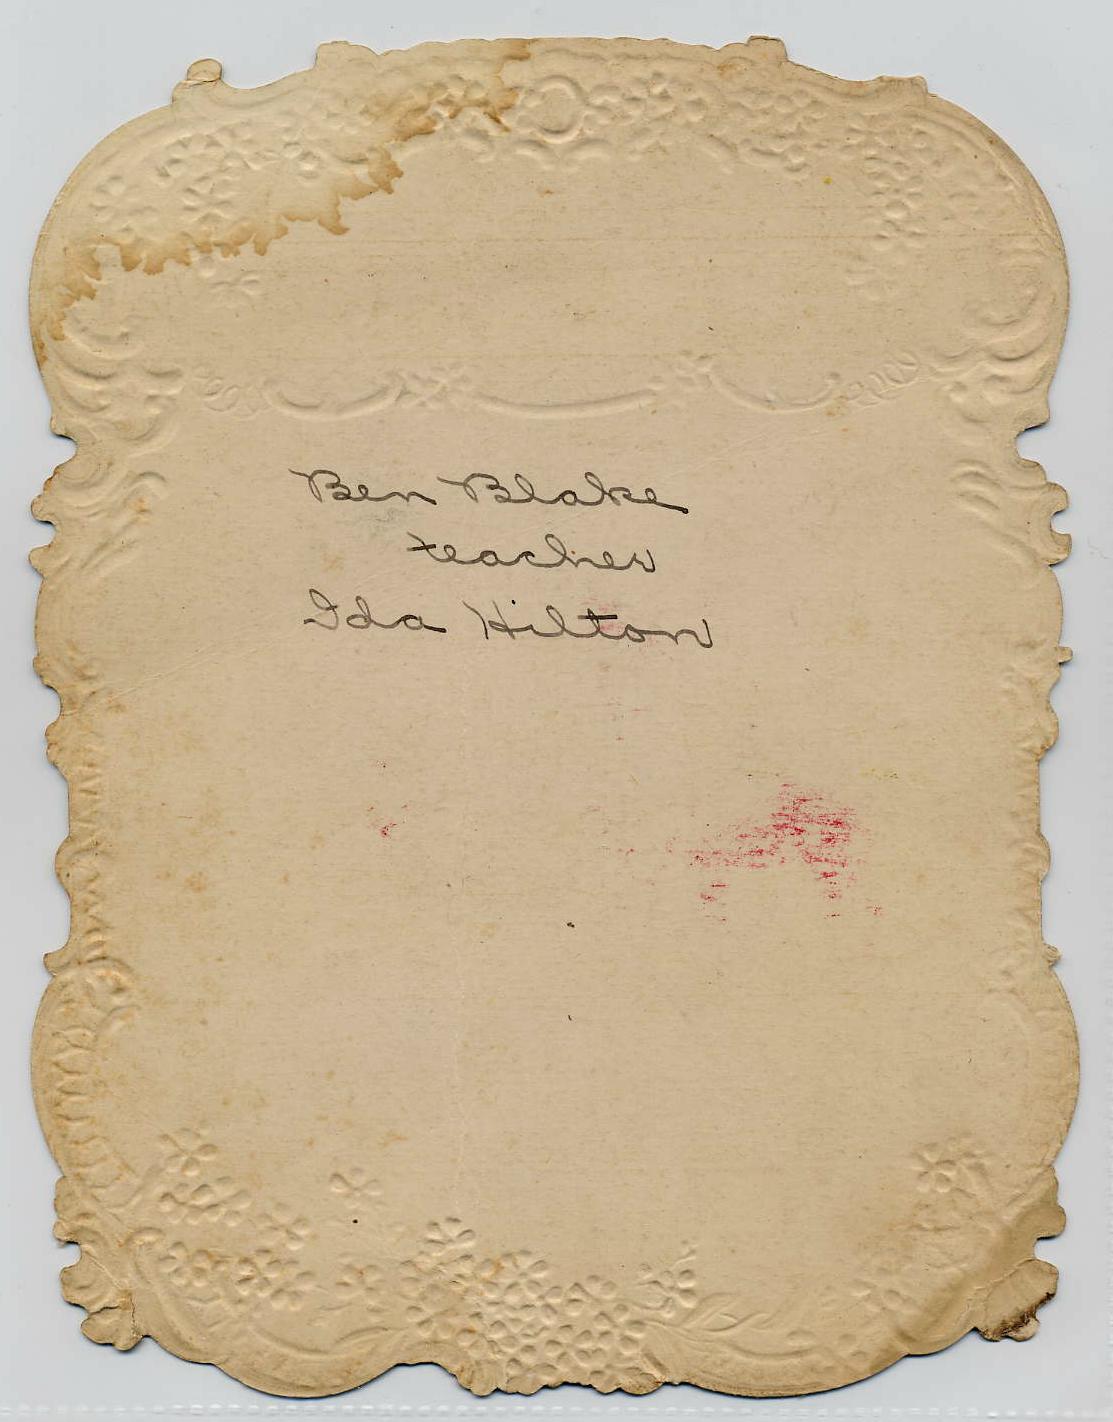 Ben Blake
teacher
Ida Hilton